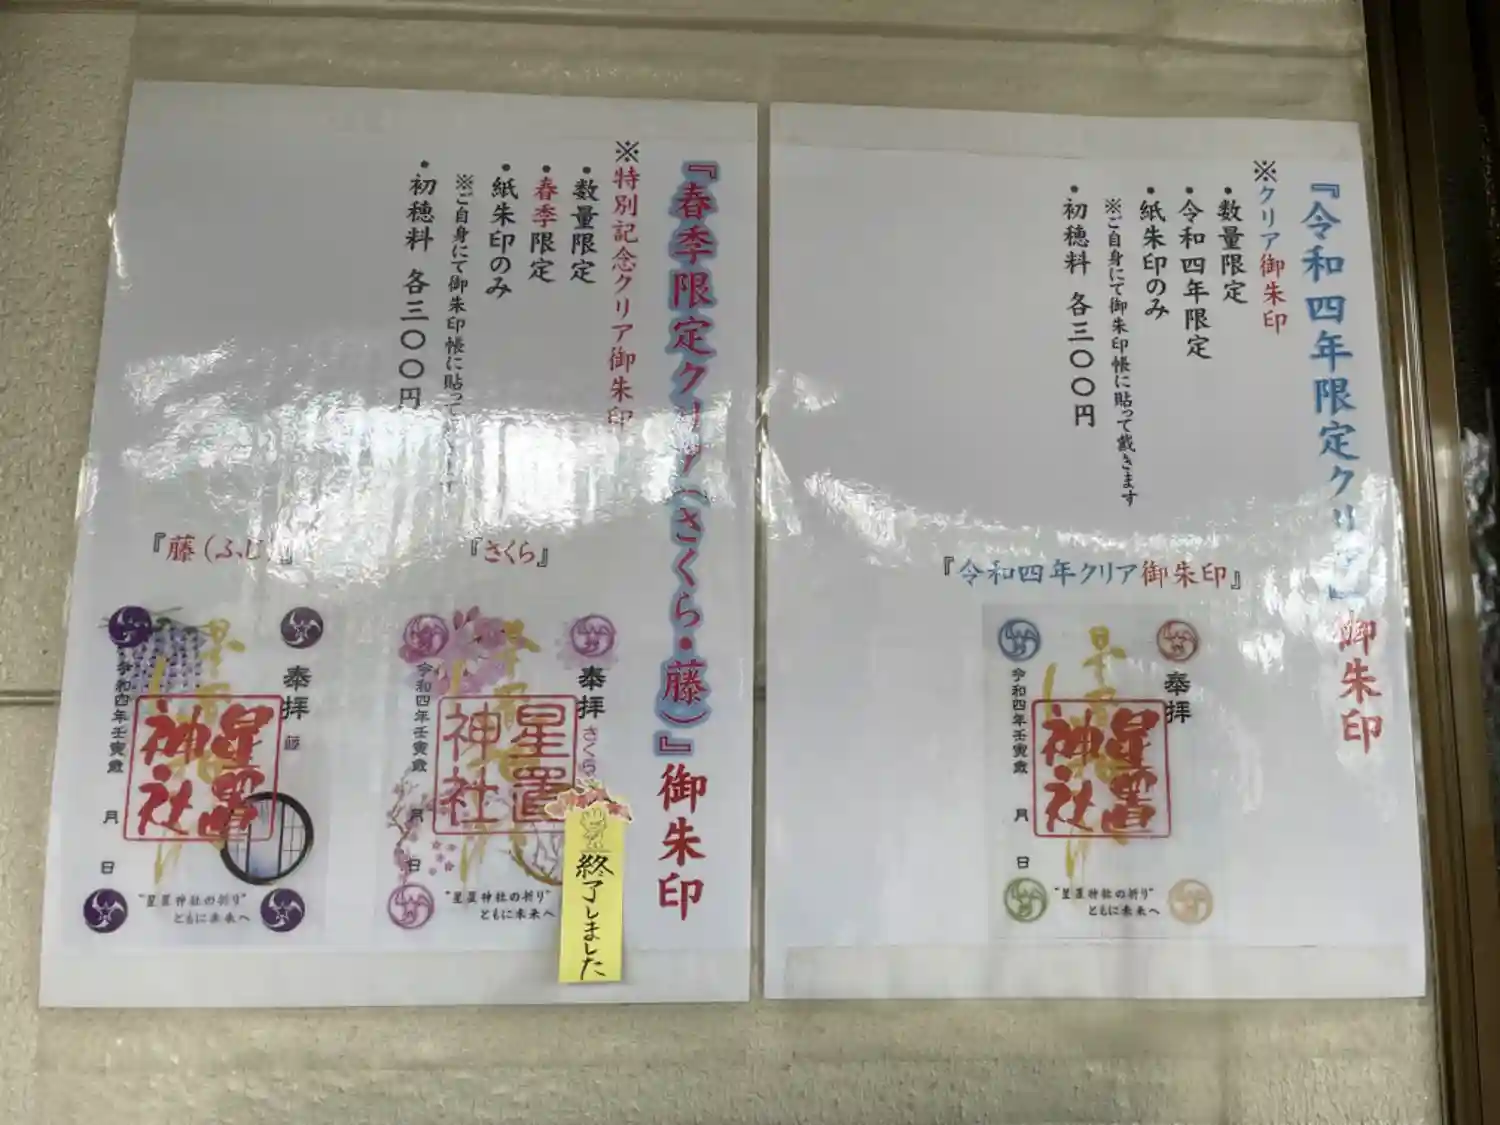 『令和四年限定クリア』御朱印
※クリア御朱印
・数量限定
・令和四年限定
・紙朱印のみ
※ご自身にて御朱印帳に貼って戴きます
・初穂料 各三〇〇円
『令和四年クリア御朱印』
奉拝
星置神社
令和四年壬寅歳 月 日
"星置神社の祈り"
ともに未来へ
『春季限定クリア(さくら・藤)』御朱印
※特別記念クリア御朱印
・数量限定
・春季限定
・紙朱印のみ
※ご自身にて御朱印帳に貼って
・初穂料 各三〇〇円
『さくら』
奉拝 さくら
星置神社
令和四年壬寅歳 月 日
"星置神社の祈り"
ともに未来へ
終了しました
『藤(ふじ)』
奉拝 藤
星置神社
令和四年壬寅歳 月 日
"星置神社の祈り"
ともに未来へ